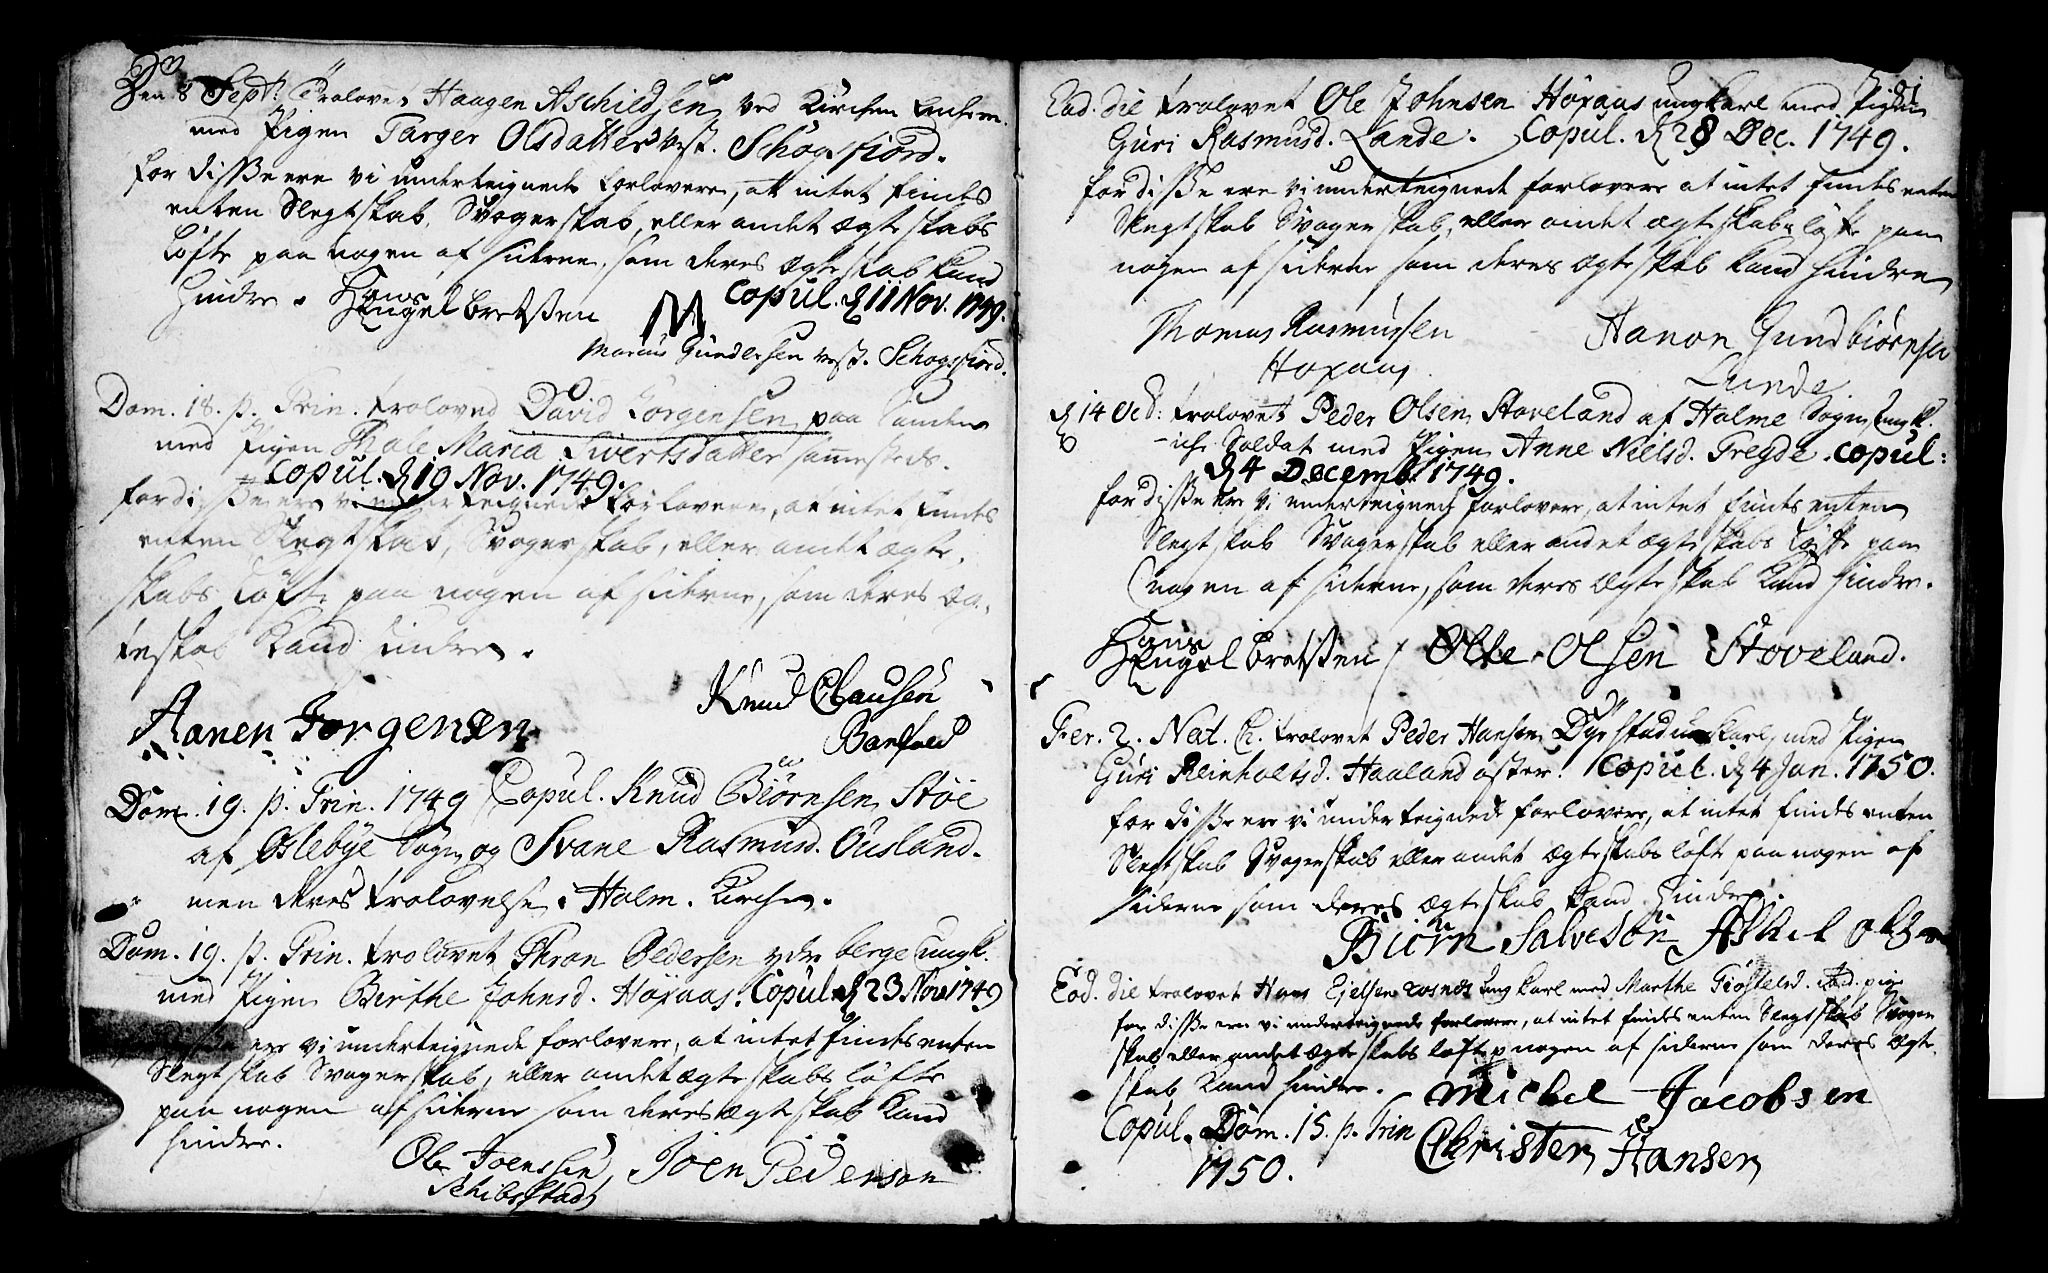 Den 8 Septr: Trolovet Haagen Aschieldsen ved Kirchen
med Pigen Targer Olsdatter vest. Schogsfiord.
for disse ere vi underteignede forlovere, at intet findes
enten Slegtskab, Svogerskab, eller andet Ægteskabs
Løfte paa nogen af siderne, som deres Ægteskab kand
hindre. Hans Engelbretssen M Copul. d 11 Nov. 1749.
Marcus Gundersen vest. Schogsfiord.
Dom. 18. p. Trin. troloved David Jørgensen paa Landøe
med Pigen Thale Maria Sivertsdatter sammesteds.
Copul. d 19 Nov. 1749.
for disse ere vi underteignede forlovere, at intet findes
enten Slegtskab, Svogerskab, eller andet ægte-
skabs Løfte paa nogen af siderne, som deres Æg-
teskab kand hindre.
Knud Clausen
Aanen Jorgensen Banfield
Dom. 19. p. Trin. 1749 Copul. Knud Biørnsen Støe
af Øslebye Sogn og Svane Rasmusd. Ousland.
men deres trolovelse i Holm. Kirche.
Dom. 19. p. Trin. trolovet Thron Pedersen ydre berge Ungk.
med Pigen Birthe Johnsd. Høxaas. Copul. d 23 Nov 1749
ere vi underteignede forlovere, at intet findes enten
Slegtskab Svogerskab, eller andet ægteskabs løfte
paa nogen af siderne som deres ægteskab kand
hindre.
Ole Joenssen Joen Pederson
Schibstad
Eod. die trolovet Ole Johnsen Høxaas ungkarl med Pigen
Guri Rasmusd. Lande. Copul. d 28 Dec. 1749.
for disse ere vi underteignede forlovere at intet findes enten
Slegtskab Svogerskab, eller andet ægteskabs løfte paa
nogen af siderne som deres ægteskab kand hindre
Thomas Rasmussen Aanon Gundbiørnsen
Høxaas. Lunde
d 14 Oct: trolovet Peder Olsen Stoveland af Halme Sogn Ungk.
Soldat med Pigen Anne Nielsd. Tregde. Copul:
d 4 Decemb. 1749.
for disse ere vi underteignede forlovere, at intet findes enten
Slegtskab Svogerskab eller andet ægteskabs Løfte paa
nogen af siderne, som deres Ægteskab kand hindre.
Hans Engelbretssen / Olle Olsen Stoveland.
Fer. 2. Nat. Ch. trolovet Peder Hansen Dyrstad ungkarl med Pigen
Guri Reinholtsd. Haaland øster. Copul. d 4 Jan. 1750.
for disse ere vi underteignede forlovere, at intet findes enten
Slegtskab Svogerskab eller andet Ægteskabs løfte paa nogen af
siderne som deres Ægteskab kand hindre.
Biørn Salvesøn Askel
Eod. die trolovet Hans Ejelsen Rosnes Ungkarl med Marthe Tiøstelsd. ibid. pige
for disse ere vi underteignede forlovere, at intet findes enten Slegtskab Svoger
skab eller andet Ægteskabs løfte p nogen af siderne som deres Ægte
skab kand hindre. Michel Jacobsen
Copul. Dom. 15. p. Trin Christen Hansen
1750.